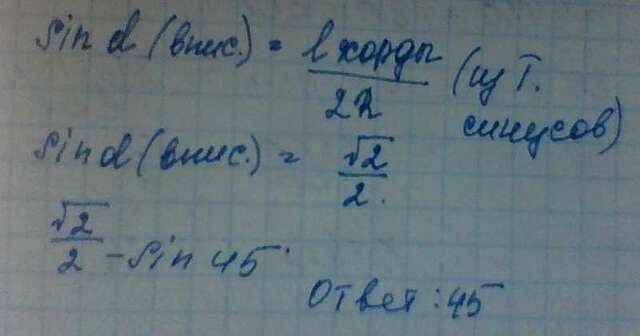 sin α (впис.) = l хорды / 2R (из т. синусов)
sin α (впис.) = √2 / 2.
√2 / 2 - sin 45°
Ответ: 45